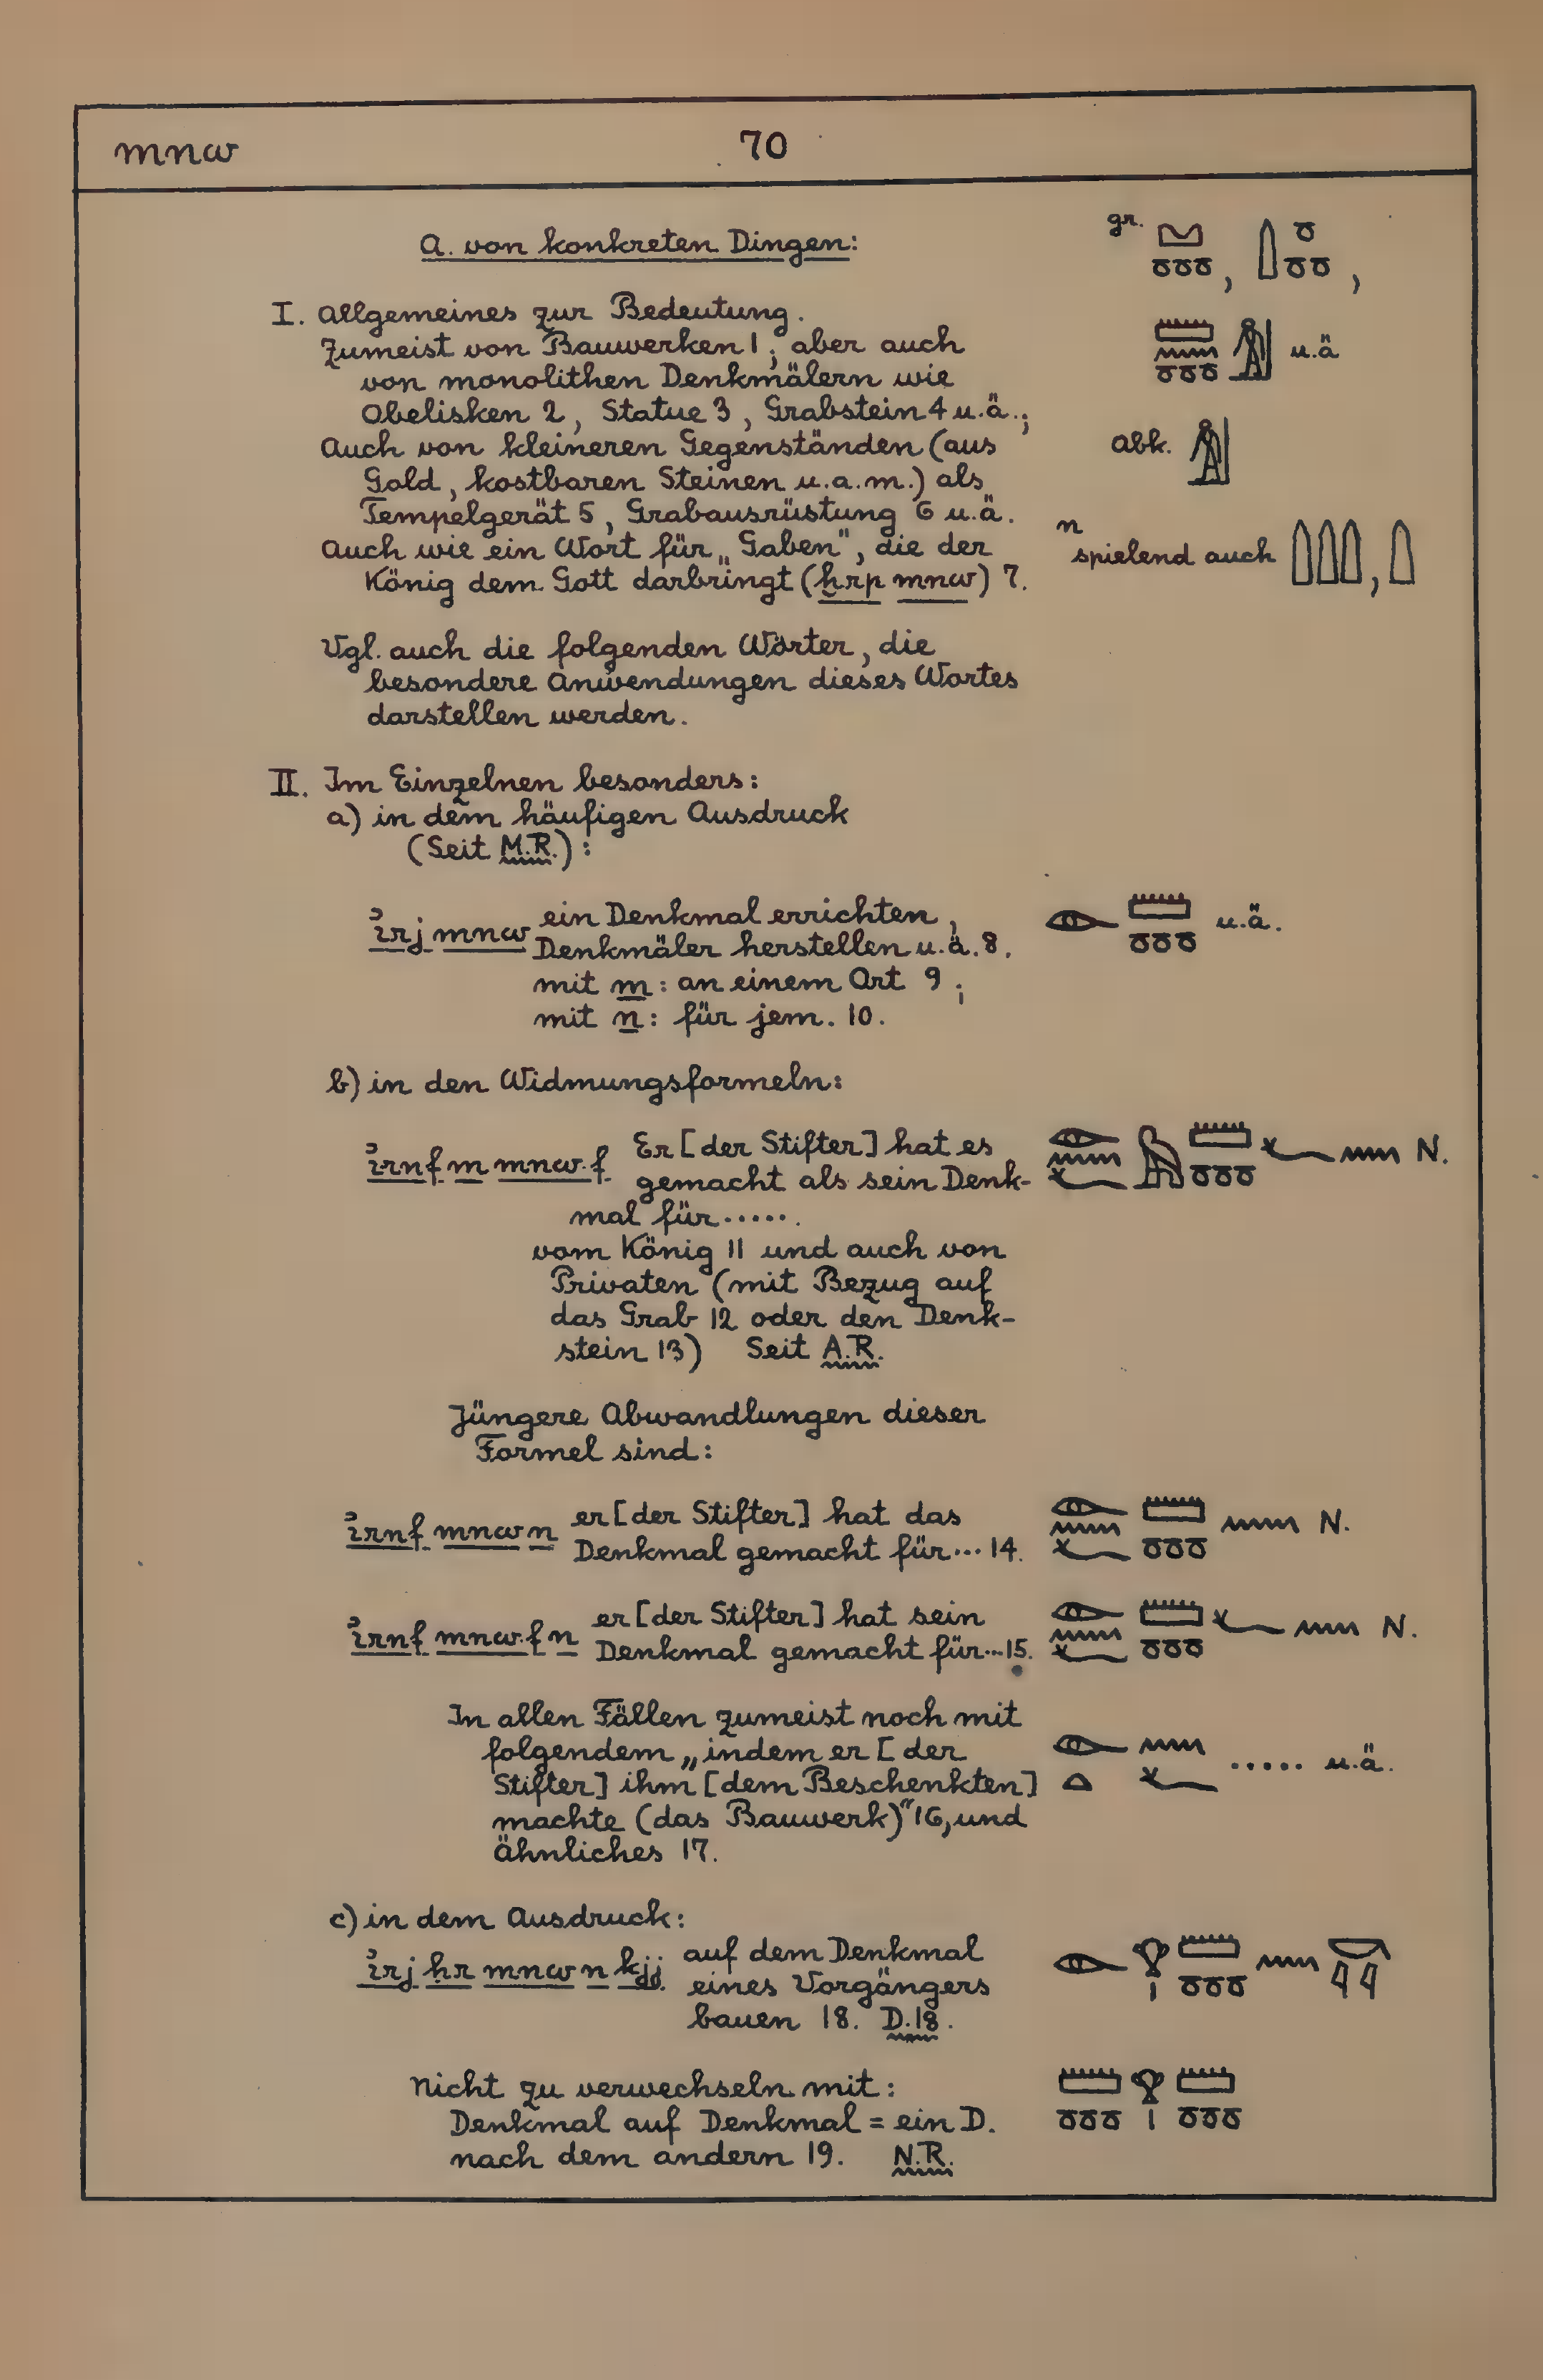 mnw
70
A. von konkreten Dingen:
gr. , ,
I. Allgemeines zur Bedeutung.
Zumeist von Bauwerken 1; aber auch
von monolithen Denkmälern wie
u.ä
Obelisken 2, Statue 3, Grabstein 4 u.ä.;
Auch von kleineren Gegenständen (aus
abk.
Gold, kostbaren Steinen u.a.m.) als
Tempelgerät 5, Grabausrüstung 6 u.ä.
Auch wie ein Wort für „Gaben", die der
n spielend auch ,
König dem Gott darbringt (ḫrp mnw) 7.
Vgl. auch die folgenden Wörter, die
besondere Anwendungen dieses Wortes
darstellen werden.
II. Im Einzelnen besonders:
a) in dem häufigen Ausdruck
(Seit M.R.):
irj mnw ein Denkmal errichten,
Denkmäler herstellen u.ä. 8.
u.ä.
mit m: an einem Ort 9;
mit n: für jem. 10.
b) in den Widmungsformeln:
irnf m mnw.f Er [der Stifter] hat es
gemacht als sein Denk-
N.
mal für......
vom König 11 und auch von
Privaten (mit Bezug auf
das Grab 12 oder den Denk-
stein 13) Seit A.R.
Jüngere Abwandlungen dieser
Formel sind:
irnf mnw n er [der Stifter] hat das
Denkmal gemacht für... 14.
N.
irnf mnw.f n er [der Stifter] hat sein
Denkmal gemacht für...15.
N.
In allen Fällen zumeist noch mit
folgendem „indem er [der
Stifter] ihm [dem Beschenkten]
..... u.ä.
machte (das Bauwerk)" 16, und
ähnliches 17.
c) in dem Ausdruck:
irj ḥr mnw n kjj auf dem Denkmal
eines Vorgängers
bauen 18. D.18.
Nicht zu verwechseln mit:
Denkmal auf Denkmal = ein D.
nach dem andern 19. N.R.